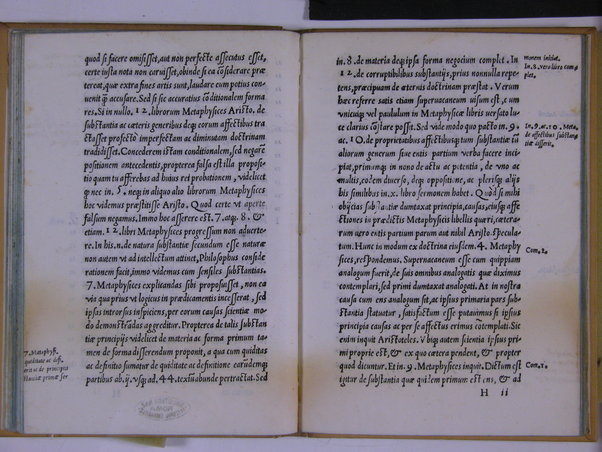 quod si facere omisisset, aut non perfecte assecutus esset,
certe iusta nota non caruisset, obinde si ea cōsiderare præ
tereat, quæ extra fines artis sunt, laudare eum potius con-
uenit q̄ accusare. Sed si sic accuratius cōditionalem forma
res. Si in nullo. 12. librorum Metaphysices Aristo. de
substantia ac cæteris generibus deq; eorum affectibus tra
ctasset profecto imperfectam ac diminutam doctrinam
tradidisset. Concederem istam conditionalem, sed negarē
positionem antecedentis, propterea falsa est illa proposi-
tio quam tu assumebas ad huius rei probationem, videlicet
q̄ nec in. 5, neq; in aliquo alio librorum Metaphysices
hoc videmus præstitisse Aristo. Quod certe vt aperte
falsum negamus. Immo hoc asserere est. 7. atq. 8. &
etiam. 12. libri Metaphysices progressum non aduerte-
re. In his n. de natura substantiæ secundum esse naturæ
non autem vt ad intellectum attinet, Philosophus conside
rationem facit, immo videmus eum sensiles substantias.
7. Metaphysices explicandas sibi proposuisset, non ea
via qua prius vt logicus in prædicamentis incesserat, sed
ipsas introrsus inspiciens, per eorum causas scientiæ mo-
do demonstrādas aggreditur. Propterea de talis substan
tiæ principijs videlicet de materia ac forma primum ta-
men de forma disserendum proponit, a qua cum quiditas
ac definitio sumatur de quiditate ac definitione earūdemq;
partibus ab. ij. vsq; ad, 44. textū abunde pertractat. Sed
7. Metaphysi.
quiditate ac defi-
in. 8. de materia deq; ipsa forma negocium complet. In
12. de corruptibilibus substantijs, prius nonnulla repe
tens, præcipuam de æternis doctrinam præstat. Verum
hæc referre satis etiam superuacaneum visum est, cum
vnicuiq; vel paululum in Metaphysicæ libris versato lu-
ce clarius cōstare posset. Sed vide modo quo pacto in. 9.
ac. 10. de proprietatibus affectibusq; tum substantiæ tū
aliorum generum siue entis partium verba facere inci-
piat, primumq; in nono de actu ac potentia, de vno ac
multis, eodem diuerso, deq; oppositione, ac plerisq; alijs
his similibus in. x. libro sermonem habet. Quod si mihi
obijcias substantiæ dumtaxat principia, causas, eiusq; affe
ctiones in prædictis Metaphysicis libellis quæri, cætera-
rum uero entis partium parum aut nihil Aristo. specula-
tum. Hunc in modum ex doctrina eiusdem. 4. Metaphy
sices, respondemus. Superuacaneum esse cum quippiam
analogum fuerit, de suis omnibus analogatis quæ diximus
contemplari, sed primi dumtaxat analogati. At in nostra
causa cum ens analogum sit, ac ipsius primaria pars sub-
stantia statuatur, satisfactum esse putauimus si ipsius
principia causas ac per se affectus erimus cōtemplati. Sic
enim inquit Aristoteles. Vbiq; autem scientia ipsius pri
mi proprie est, & ex quo cætera pendent, & propter
quod dicuntur. Et in. 9. Metaphysices inquit. Dictum est
igitur de substantia quæ quidem primum est ens, & ad
H ii
In. 9. ac. 10. Meta.
de affectibus substan
tiæ disserit.
Com. 2.
Com. 1.